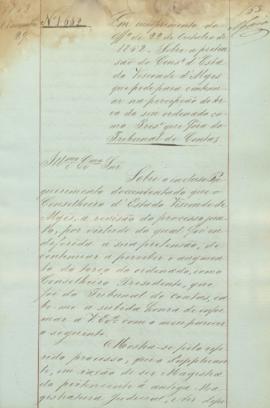 N. 1662
Em cumprimento do
Off.º de 22 de Outubro de
1862. Sobre a preten-
são do Cons.º d'Estado
Visconde d'Algés
que pede para continu-
ar na percepção do ter-
ço do seu ordenado co-
mo Pres.e que foi do
Tribunal de Contas.
Ill.mo Ex.mo Snr.
Sobre o incluso Re-
querimento documentado que o
Conselheiro d'Estado Visconde de
Algés, a revisão do processo pe-
lo, por virtude do qual foi in-
deferida a sua pretensão, de
continuar a perceber o augmen-
to do terço do ordenado, como
Conselheiro Presidente, que
foi do Tribunal de Contas, ca-
be-me a subida honra de infor-
mar a V. Ex.ª com o meu parecer
o seguinte.
Mostra-se pelo refe-
rido processo, que o Supplican-
te, em razão de ser Magistra-
do pertencente á antiga Ma-
gistratura Judicial, e ter